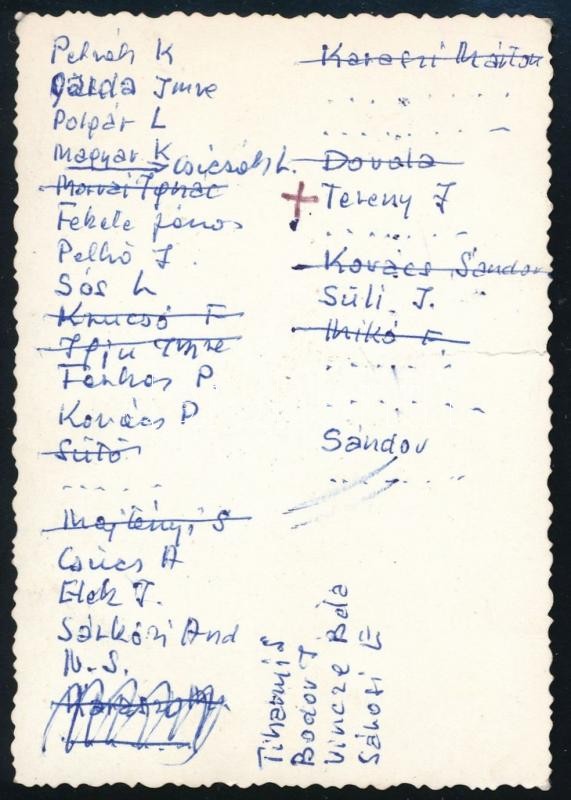 Petrák K
Páldá Imre
Polgár L
Magyar K → Csicsák L.
Marvai Ignác
Fekete János
Pelkó J.
Sós L
Krucsó F
Ifju Imre
Farkas P
Kovács P
Sütő
. . . . . .
Majtényi S
Csúcs A
Elek J.
Sárközi And
N. S.
Karaszi M
Karaszi Márton
. . . . . . . . . .
. . . . . . . . .
Dovala
+ Tereny J
. . . . . . . .
Kovács Sándor
Süli J.
Inikó F
. . . . . . .
. . . . . . . .
Sándor
. . . . . . . .
Tiharmi S
Bodor J
Vincze Béla
Sánosi E